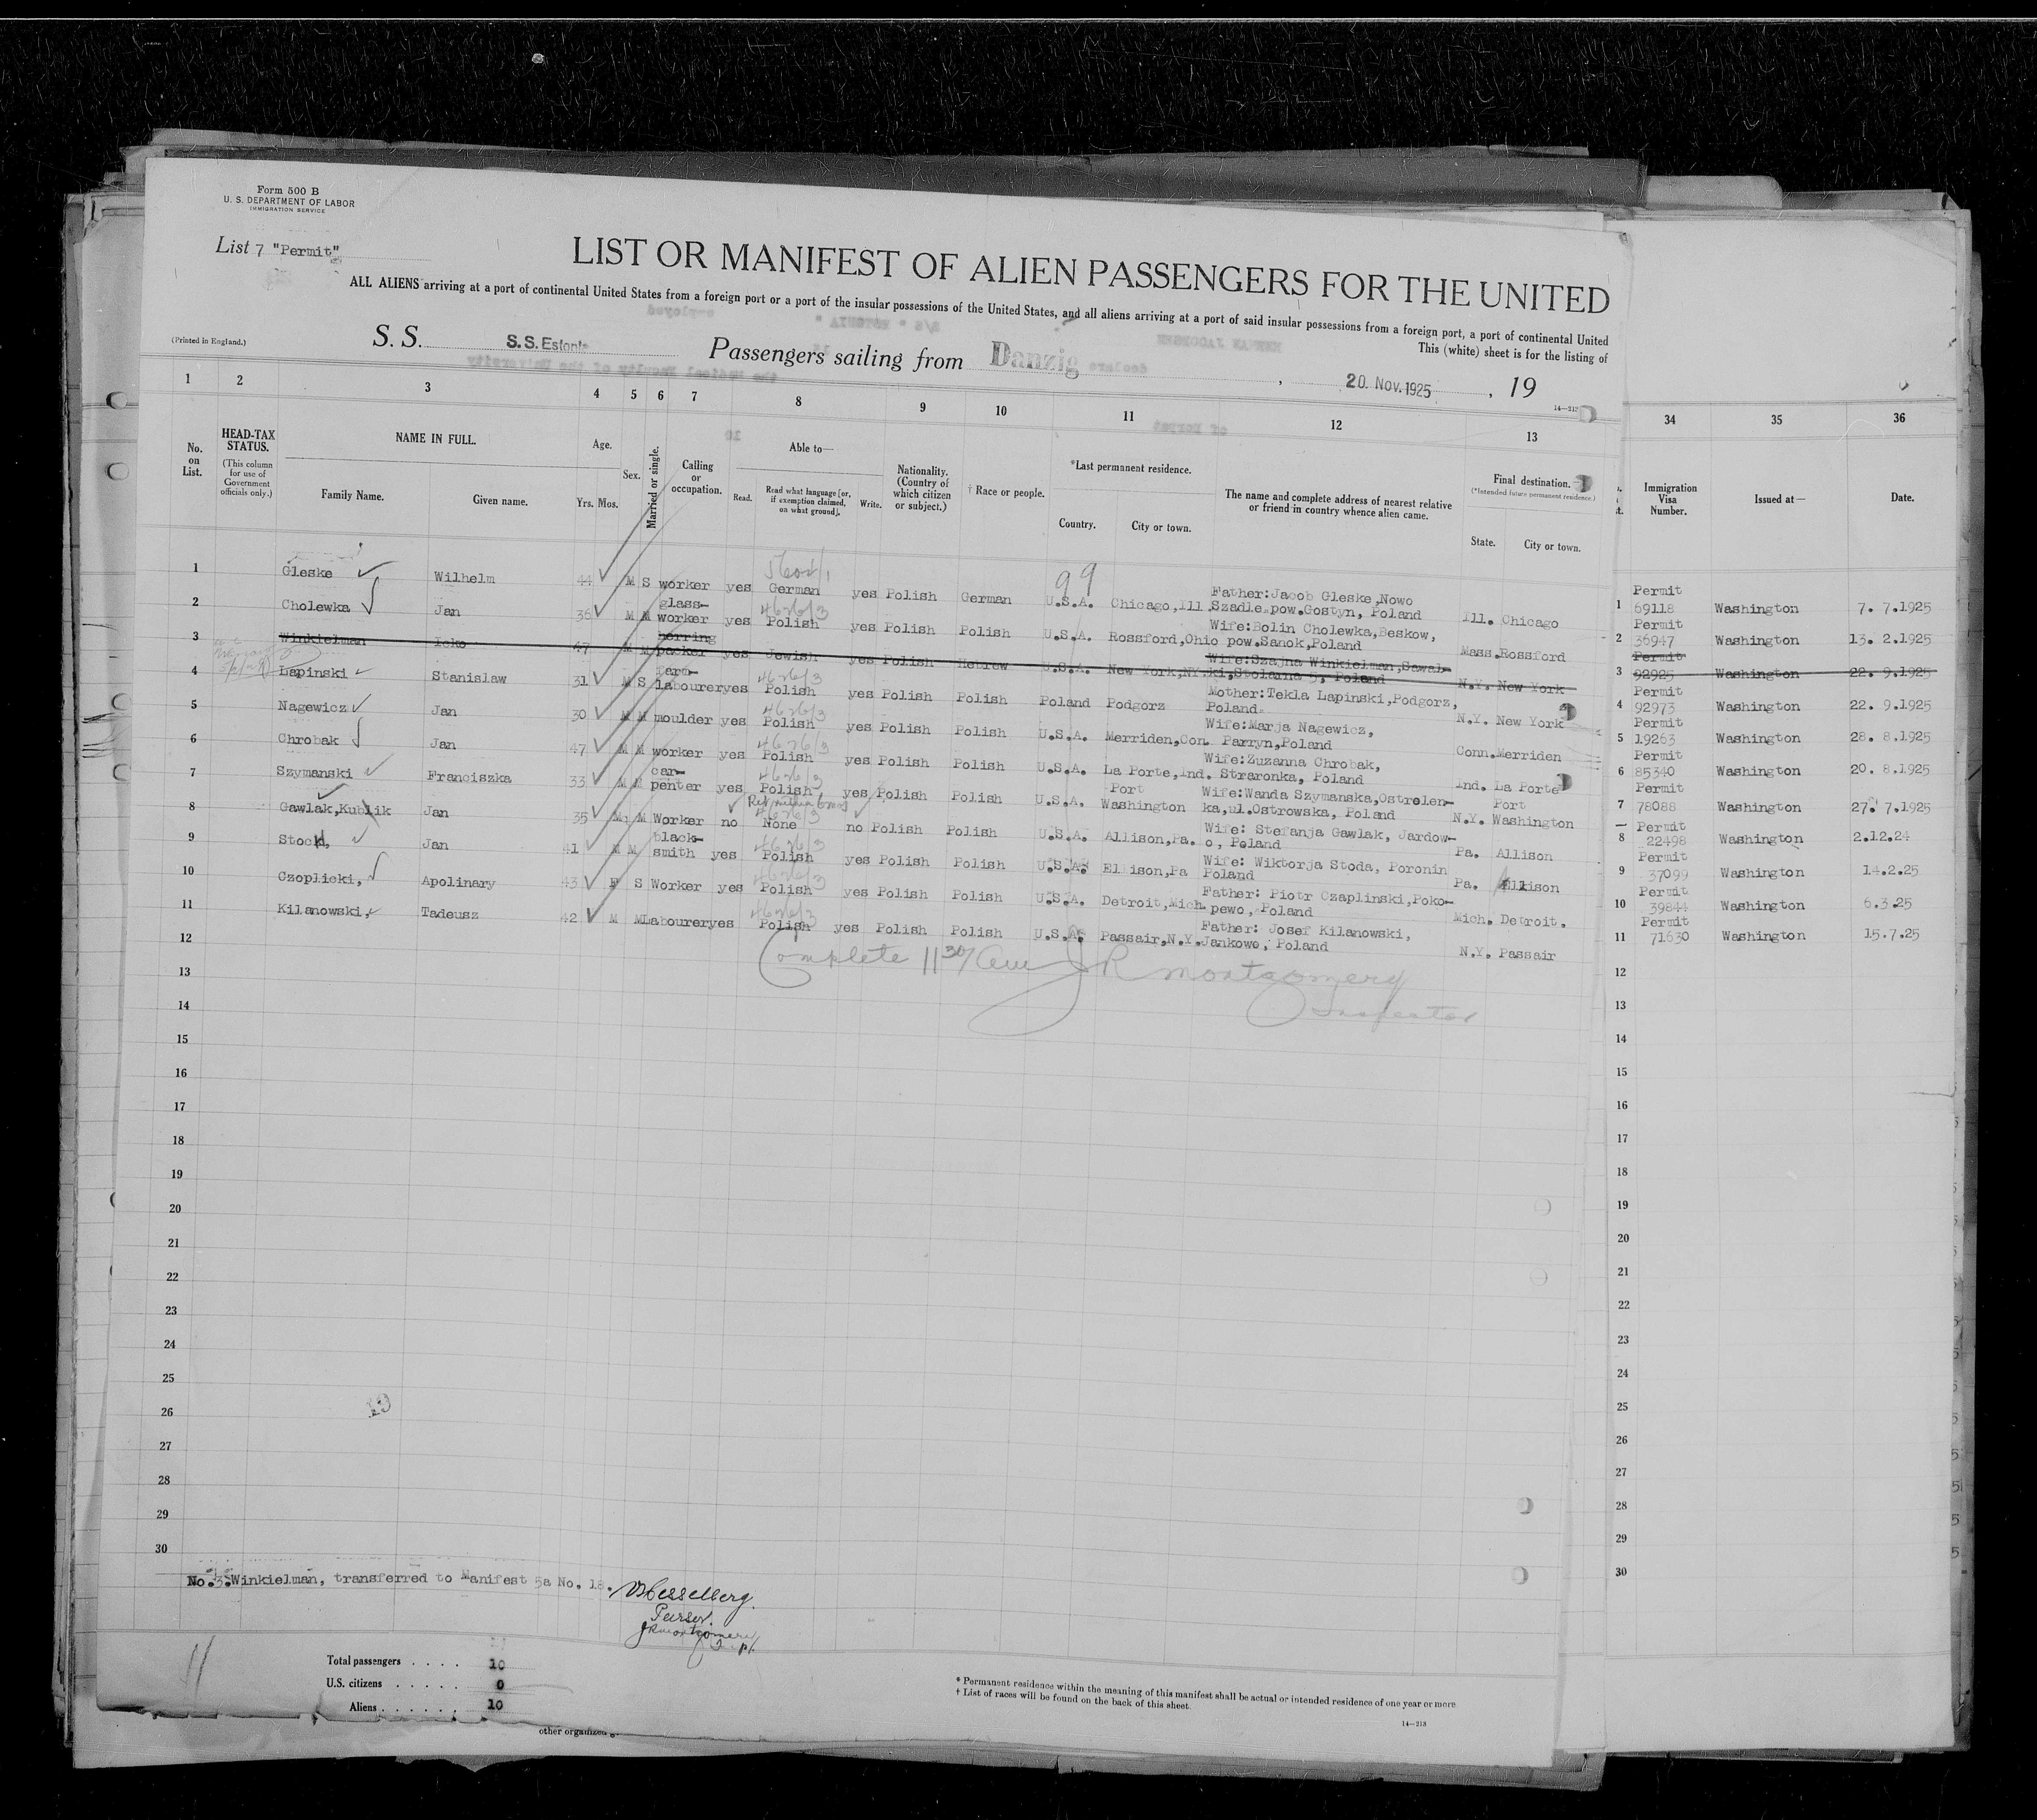 Form 500 B
U. S. DEPARTMENT OF LABOR
IMMIGRATION SERVICE
List 7 "Permit"
LIST OR MANIFEST OF ALIEN PASSENGERS FOR THE UNITED
ALL ALIENS arriving at a port of continental United States from a foreign port or a port of the insular possessions of the United States, and all aliens arriving at a port of said insular possessions from a foreign port, a port of continental United
This (white) sheet is for the listing of
(Printed in England.)
S. S. S.S. Estonia Passengers sailing from Danzig, 20. Nov. 1925, 19
1 2 3 4 5 6 7 8 9 10 11 12 13 34 35 36
No. on List.
HEAD-TAX STATUS.
(This column for use of Government officials only.)
NAME IN FULL.
Family Name. Given name.
Age.
Yrs. Mos.
Sex.
Married or single.
Calling or occupation.
Able to—
Read. Read what language [or, if exemption claimed, on what ground]. Write.
Nationality. (Country of which citizen or subject.)
† Race or people.
*Last permanent residence.
Country. City or town.
The name and complete address of nearest relative or friend in country whence alien came.
Final destination.
(*Intended future permanent residence.)
State. City or town.
Immigration Visa Number.
Issued at—
Date.
99
1 Gleske Wilhelm 44 M S worker yes German yes Polish German U.S.A. Chicago,Ill. Father:Jacob Gleske,Nowo Szadle.pow.Gostyn, Poland Ill. Chicago 1 Permit 69118 Washington 7. 7.1925
2 Cholewka Jan 36 M M glass-worker yes Polish yes Polish Polish U.S.A. Rossford,Ohio Wife:Bolin Cholewka,Beskow, pow.Sanok,Poland Mass.Rossford 2 Permit 36947 Washington 13. 2.1925
3 Winkielman Icko 47 M M herring packer yes Jewish yes Polish Hebrew U.S.A. New York,NY. Wife:Szajna Winkielman,Suwal-ki,Stolarna 5, Poland N.Y. New York 3 Permit 92925 Washington 22. 9.1925
4 Lapinski Stanislaw 31 M S labourer yes Polish yes Polish Polish Poland Podgorz Mother:Tekla Lapinski,Podgorz, Poland. N.Y. New York 4 Permit 92973 Washington 22. 9.1925
5 Nagewicz Jan 30 M M moulder yes Polish yes Polish Polish U.S.A. Merriden,Con. Wife:Marja Nagewicz, Parryn,Poland Conn.Merriden 5 Permit 19263 Washington 28. 8.1925
6 Chrobak Jan 47 M M worker yes Polish yes Polish Polish U.S.A. La Porte,Ind. Wife:Zuzanna Chrobak, Straronka, Poland Ind. La Porte 6 Permit 85340 Washington 20. 8.1925
7 Szymanski Franciszka 33 M M car-penter yes Polish yes Polish Polish U.S.A. Port Washington Wife:Wanda Szymanska,Ostrolen-ka,ul.Ostrowska, Poland N.Y. Port Washington 7 Permit 78088 Washington 27. 7.1925
8 Gawlak,Kublik Jan 35 M M Worker no None no Polish Polish U.S.A. Allison,Pa. Wife: Stefanja Gawlak, Jardow-o, Poland Pa. Allison 8 Permit 22498 Washington 2.12.24
9 Jan 41 M M black-smith yes Polish yes Polish Polish U.S.A. Ellison,Pa Wife: Wiktorja Stoda, Poronin Poland Pa. Allison 9 Permit 37099 Washington 14.2.25
10 Czoplicki, Apolinary 43 F S Worker yes Polish yes Polish Polish U.S.A. Detroit,Mich. Father: Piotr Czaplinski,Poko-pewo, Poland Mich. Detroit. 10 Permit 39844 Washington 6.3.25
11 Kilanowski, Tadeusz 42 M M Labourer yes Polish yes Polish Polish U.S.A. Passair,N.Y. Father: Josef Kilanowski, Jankowo, Poland N.Y. Passair 11 Permit 71630 Washington 15.7.25
Complete 11 30/ am J R Montgomery
Inspector
12 12
13 13
14 14
15 15
16 16
17 17
18 18
19 19
20 20
21 21
22 22
23 23
24 24
25 25
26 26
27 27
28 28
29 29
30 30
No. 3.Winkielman, transferred to Manifest 5a No. 18.
Purser.
JRMontgomery
Total passengers . . . . 10
U.S. citizens . . . . . 0
Aliens . . . . . . 10
* Permanent residence within the meaning of this manifest shall be actual or intended residence of one year or more
† List of races will be found on the back of this sheet.
14—213
other organized